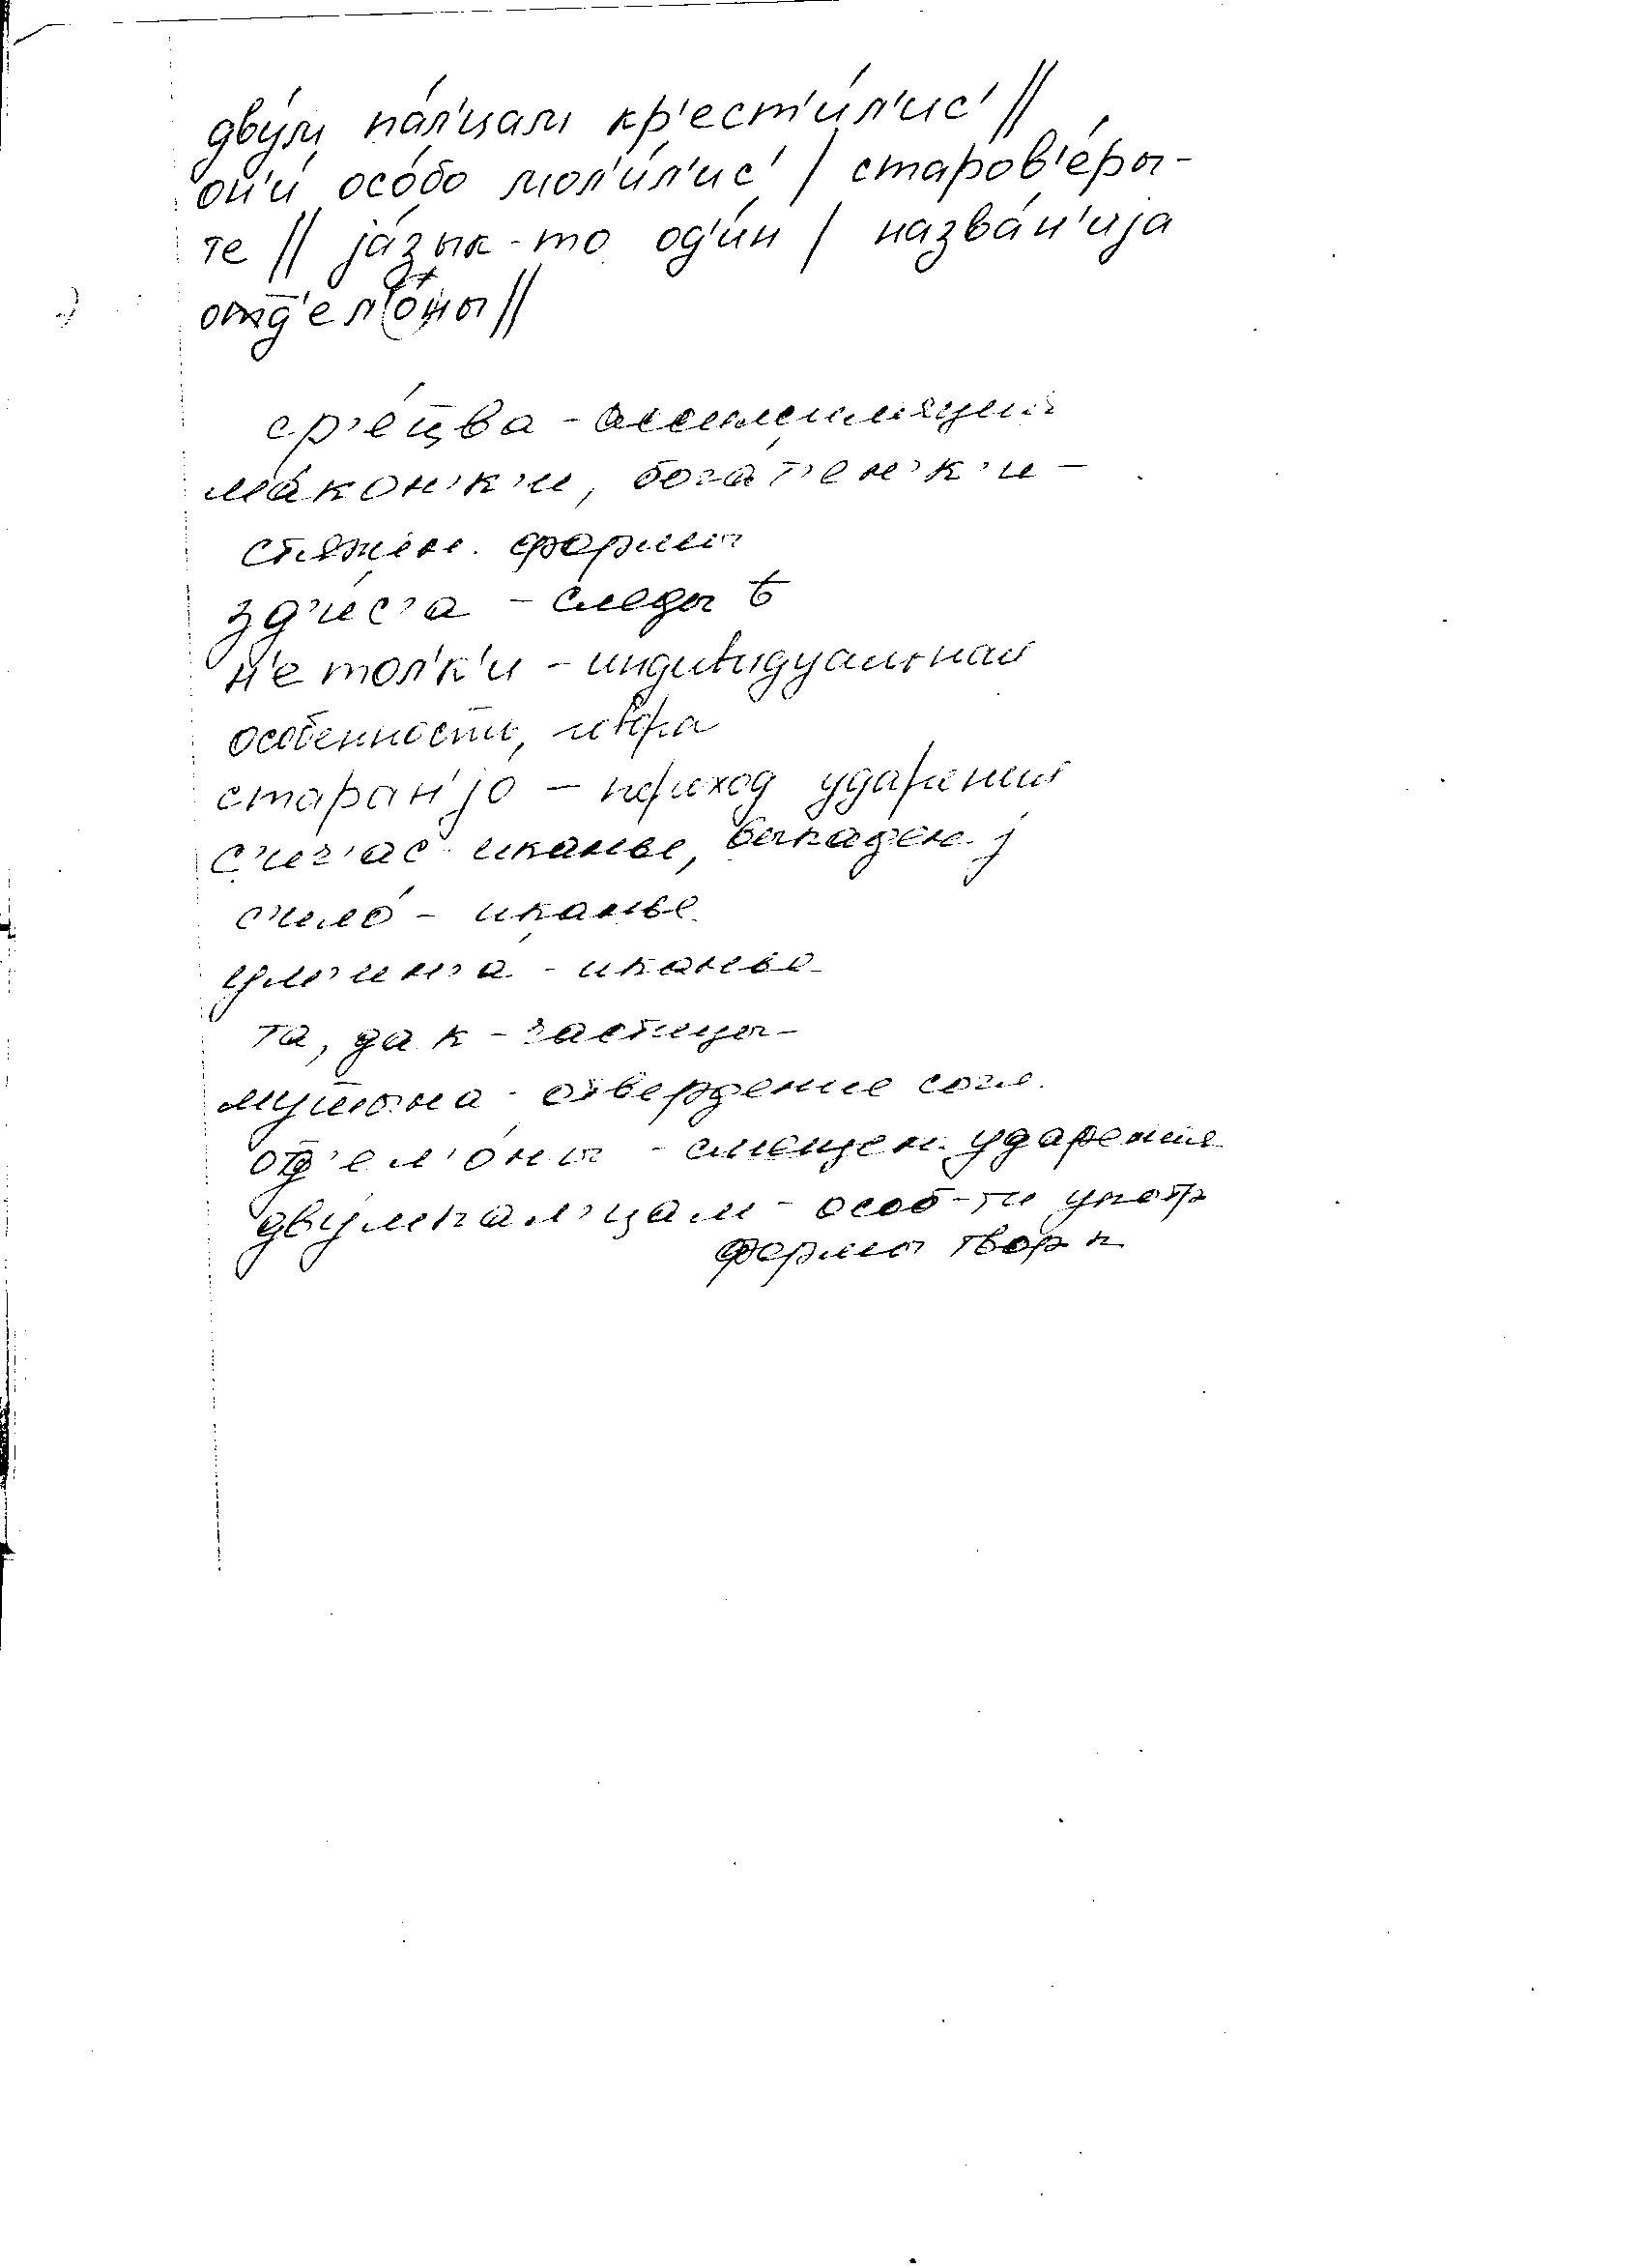 дву́м па́л'цам кр'ест'и́л'ис' //
он'и́ осо́бо мол'и́л'ис' / старов'е́ры-
те // ја́зык-то од'и́н / назва́н'ија
отд'ел'о́ны //
ср'е́цва - ассимиляция
ма́кон'к'и, бога́т'ен'к'и -
стяжен. формы
зд'и́с'а - следы ѣ
н'е тол'к'и - индивидуальная
особенность,
старан'јо́ - переход ударения
с'ич'ас - иканье, выпаден. j
с'ило́ - иканье
- иканье
та, дак - частицы -
- отвердение согл.
отд'ел'о́ны - смещен. ударения
дву́м пал'цам - особ-ти употр
формы твор п